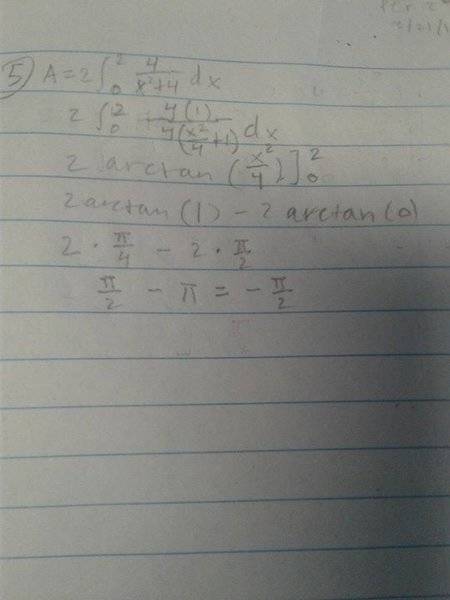 5 A = 2 ∫₀² 4/(x²+4) dx
2 ∫₀² 4(1)/(4(x²/4+1)) dx
2 arctan (x²/4)]₀²
2 arctan (1) - 2 arctan (0)
2 · π/4 - 2 · π/2
π/2 - π = - π/2